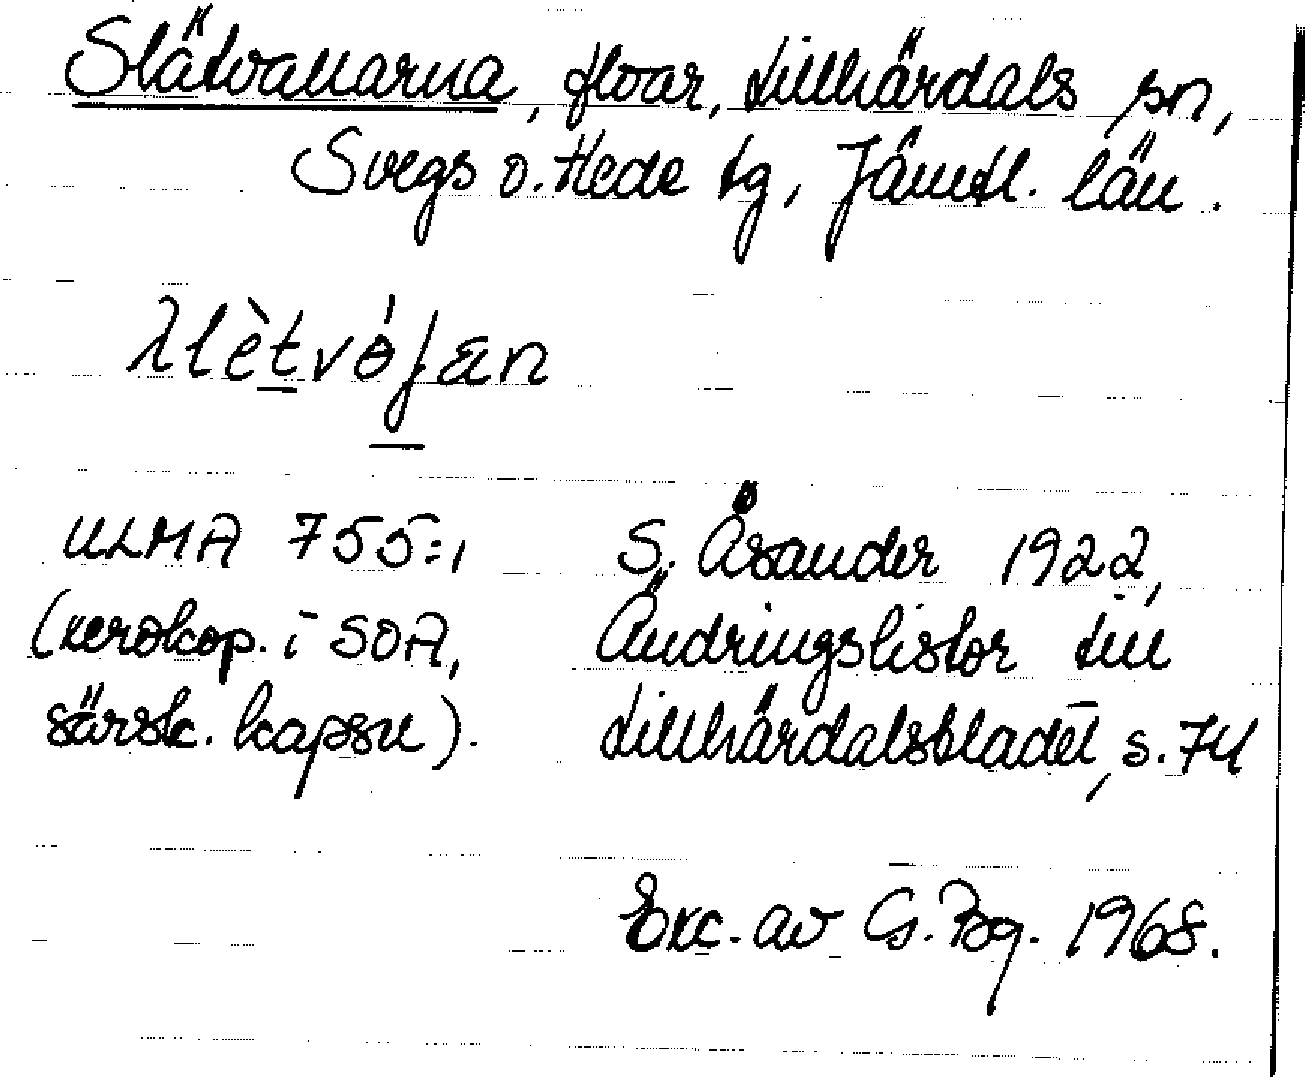 Slätvallarna, flvar, Lillhärdals sn,
Svegs o. Hede tg, Jämtl. län.
ULMA 755:1
(xerokop. i SOA,
särsk. kapsel).
S. Åsander 1922,
Ändringslistor till
Lillhärdalsbladet, s. 74
Exc. av G. Bg. 1968.